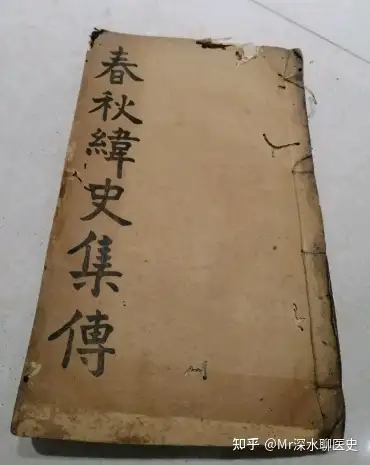 春秋緯史集傳
知乎 @Mr深水聊医史